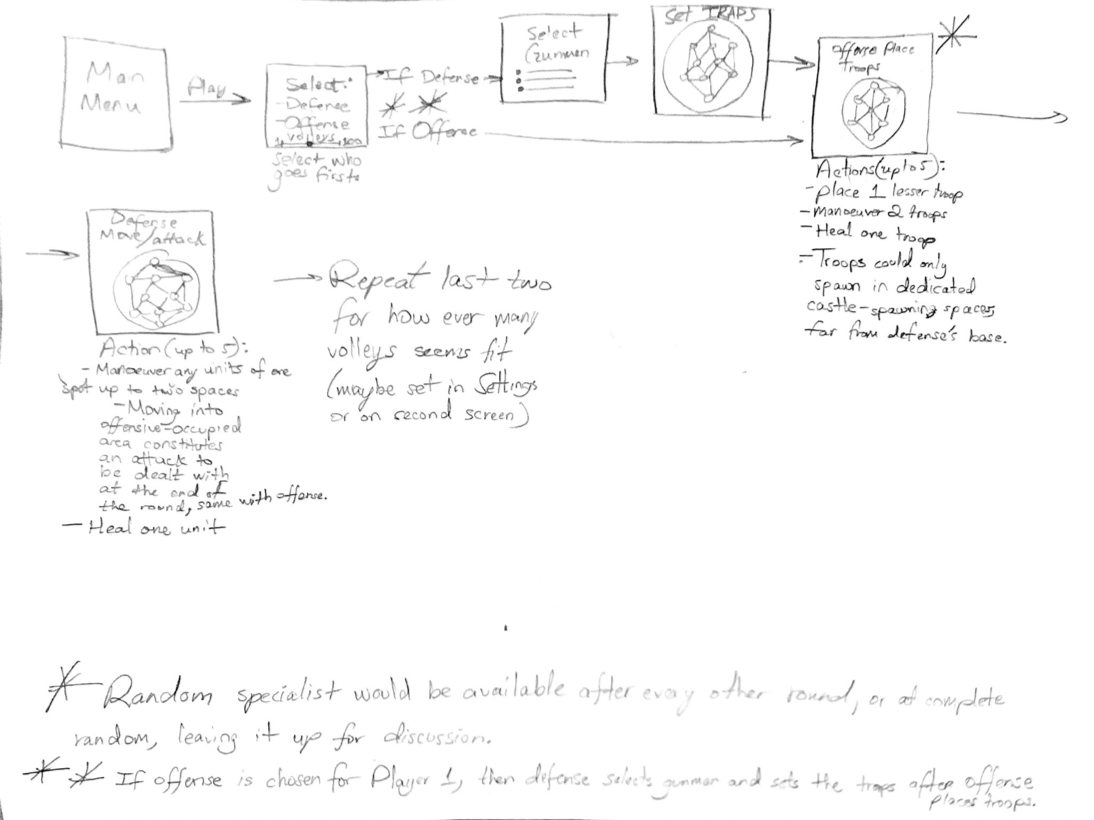 Man
Menu
Play
Select:
- Defense
- Offense
volleys
Select who
goes first
If Defense
* *
If Offense
Select
Gunmen
Set TRAPS
Offense Place
Troops
*
Actions (up to 5):
- place 1 lesser troop
- Manoeuver 2 troops
- Heal one troop
- Troops could only
spawn in dedicated
castle-spawning spaces,
far from defense's base.
Defense
Move/attack
Action (up to 5):
- Manoeuver any units of one
spot up to two spaces
- Moving into
offensive-occupied
area constitutes
an attack to
be dealt with
at the end of
the round, same with offense.
- Heal one unit
Repeat last two
for how ever many
volleys seems fit
(maybe set in Settings
or on second screen)
* Random specialist would be available after every other round, or at complete
random, leaving it up for discussion.
* * If offense is chosen for Player 1, then defense selects gunman and sets the traps after offense
places troops.